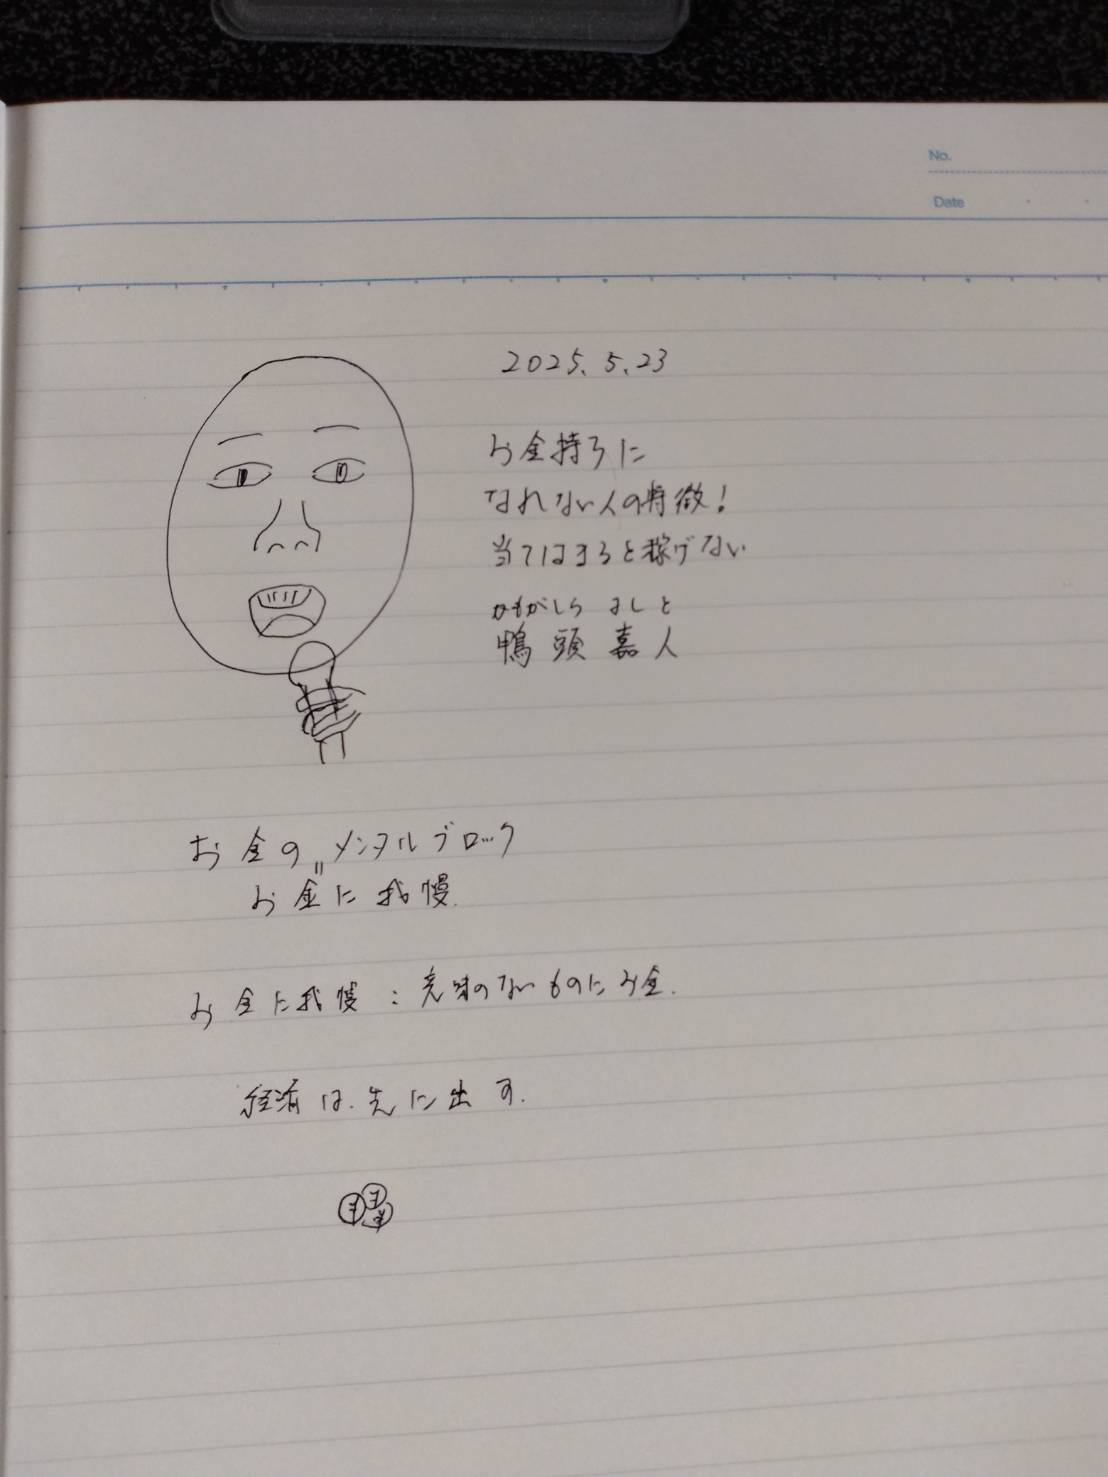 No.
Date
2025.5.23
お金持ちに
なれない人の特徴!
当てはまると稼げない
かもがしら よしと
鴨頭嘉人
お金のメンタルブロック
〃
お金に我慢.
お金に我慢:意味のないものにお金.
経済は.先に出す.